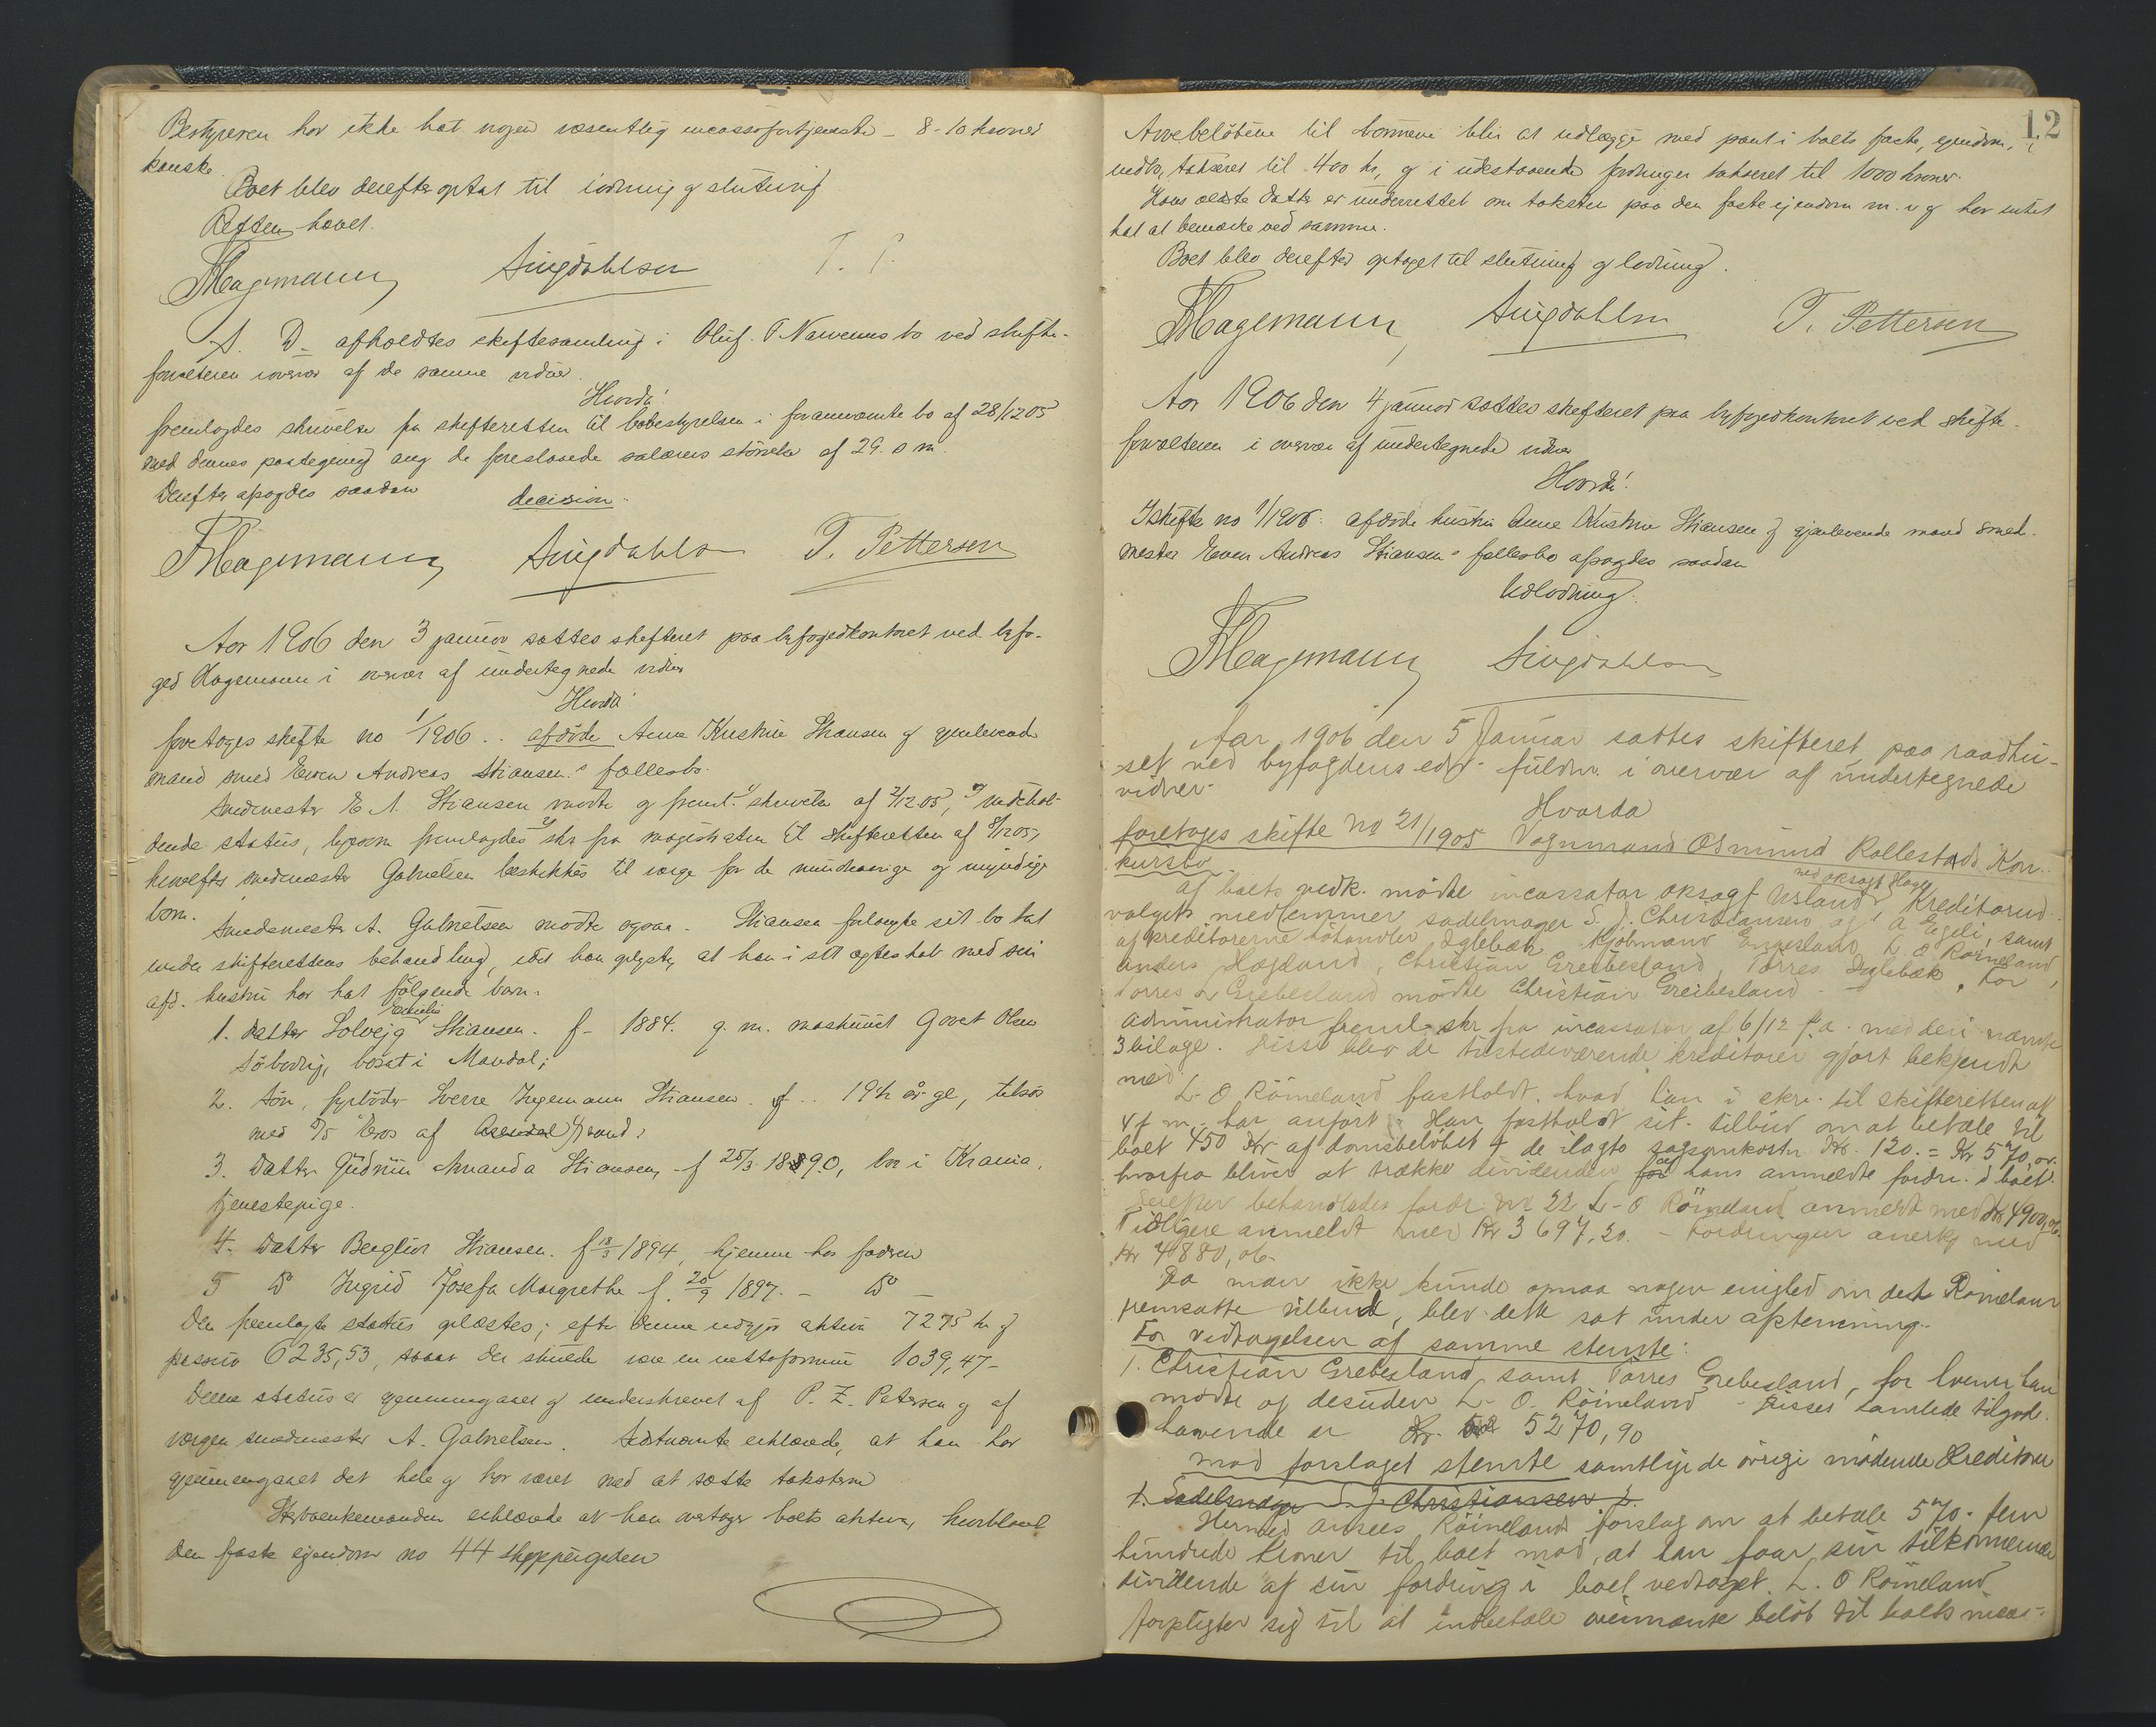 Bestyreren har ikke hat nogen væsentlig incassofortjeneste - 8-10 kroner
kanske.
Boet blev derefter optat til lodning og slutning
Retten hævet.
Hagemann Singdahlsen T. P.
A. D. afholdtes skiftesamling i Oluf T. bo ved skifte-
forvalteren i overvær af de samme vidner
Hvorda!
fremlagdes skrivelse fra skifteretten til bobestyrelsen i forannævnte bo af 28/12 05
med dennes paategning ang de foreslaaede salærers störrelse af 29. s m.
Derefter afsagdes saadan decision.
Hagemann Singdahlsen T. Pettersen
Aar 1906 den 3 januar sattes skifteret paa byfogedkontoret ved byfo-
ged Hagemann i overvær af undertegnede vidner
Hvorda
foretoges skifte no 1/1906.. afdöde Anne Kristine Stiansen og gjenlevende
mand smed Even Andreas Stiansen's fællesbo.
Smedmester E A. Stiansen mödte og freml. 1) skrivelse af 2/12 05, indehol-
dende status, ligesom fremlagdes 2) skr fra magistraten til skifteretten af 8/12 05,
hvorefter smedmester Gabrielsen beskikkes til værge for de mindreaarige og umyndige
börn.
Smedemester A. Gabrielsen mödte ogsaa. Stiansen forlangte sit bo tat
under skifterettens behandling, idet han opgav, at han i sit ægteskab med sin
afd. hustru har hat fölgende barn:
1. Datter Solveig Emilie Stiansen. f. 1884. g. m. maskinist Govet Olsen
Söbodrig, bosat i Mandal;
2. Sön, fyrböder Sverre Ingemann Stiansen. f.. 19 1/2 år gl, tilsös
med D/S Eros af Arendal Strand;
3. Datter Gudrun Amanda Stiansen, f 25/3 1890, bor i Krania,
tjenestepige.
4. Datter Bergliot Stiansen. f 18/3 1894, hjemme hos faderen
5 Do Ingrid Josefa Margrethe f. 20/9 1897. - Do -
Den fremlagte status oplæstes; efter denne udgjör aktiva 7275 kr og
passiva 6235,53, saaat der skulde være en nettoformue 1039,47-
Denne status er gjennemgaaet og underskrevet af P. Z. Petersen og af
værgen smedmester A. Gabrielsen. Sidstnævnte erklærede, at han har
gjennemgaaet det hele og har været med at sætte taksterne
Stervenkemanden erklærede at han overtager boets aktiva, hvorblandt
den faste eiendom no 44 Skippergaden
12
Arvebelöbene til börnene blir at udlægge med pant i boets faste eiendom,
indbo, takseret til 400 kr, og i udestaaende fordringer takseret til 1000 kroner.
Hans ældste datter er underrettet om taksten paa den faste ejendom m. v og har intet
hat at bemærke ved samme.
Boet blev derefter optaget til slutning og lodning.
Hagemann Singdahlsen T. Pettersen
Aar 1906 den 4 januar sattes skifteret paa byfogedkontoret ved skifte-
forvalteren i overvær af undertegnede vidner
Hvorda!
I skifte no 1/1906: afdöde hustru Anne Kristine Stiansen og gjenlevende mand smed-
mester Even Andreas Stiansen's fællesbo afsagdes saadan
Udlodning.
Hagemann Singdahlsen
Aar 1906 den 5 Januar sattes skifteret paa raadhu-
set ved byfogdens edsv. fuldm. i overvær af undertegnede
vidner.
Hvorda
foretoges skifte No 21/1905 Vognmand Osmund Rollestads Kon-
kursbo.
Af boets vedk. mödte incassator oksagf. Usland ved oksagf Hagen, Kreditorud-
valgets medlemmer sadelmager S. J. Christiansen og A Egeli, samt
af kreditorerne Eglebæk, Kjöbmand Eggesland, L O Röineland,
Anders Høgland, Christian Greibesland, Torres Eglebæk. For
Torres L Greibesland mödte Christian Greibesland.
Administrator freml. skr. fra incassator af 6/12 f. a. med deri nævnte
3 bilage. Disse blev de tilstedeværende kreditorer gjort bekjendt
med.
L. O Röineland fastholdt, hvad han i skr. til skifteretten af
4 f m. har anfört. Han fastholdt sit tilbud om at betale til
boet 450 kr af domsbelöbet + de ilagte sagsomkostn Kr. 120. = Kr 570, or.
hvorfra bliver at trække dividenden for af hans anmeldte fordr. i boet.
Derefter behandledes fordr. No 22 L. O Röineland anmeldt med Kr 4900,06.
Tidligere anmeldt med Kr 3697,20. - Fordringen anerkj med
Kr 4880,06.
Da man ikke kunde opnaa nogen enighed om det Röineland
fremsatte tilbud, blev dette sat under afstemning.
For vedtagelsen af samme stemte:
1. Christian Greibesland samt Torres Greibesland, for hvem han
mödte og desuden L. O. Röineland - Disses samlede tilgode-
havende er Kr. 5270,90
mod forslaget stemte samtlige de övrige mödende Kreditorer
1. Sadelmager S. J. Christiansen
Hermed ansees Röinelands forslag om at betale 570- fem
hundrede kroner til boet mod, at han faar sin tilkommende
dividende af sin fordring i boet vedtaget. L. O Röineland
forpligter sig til at indbetale ovennævnte belöb til boets incas-